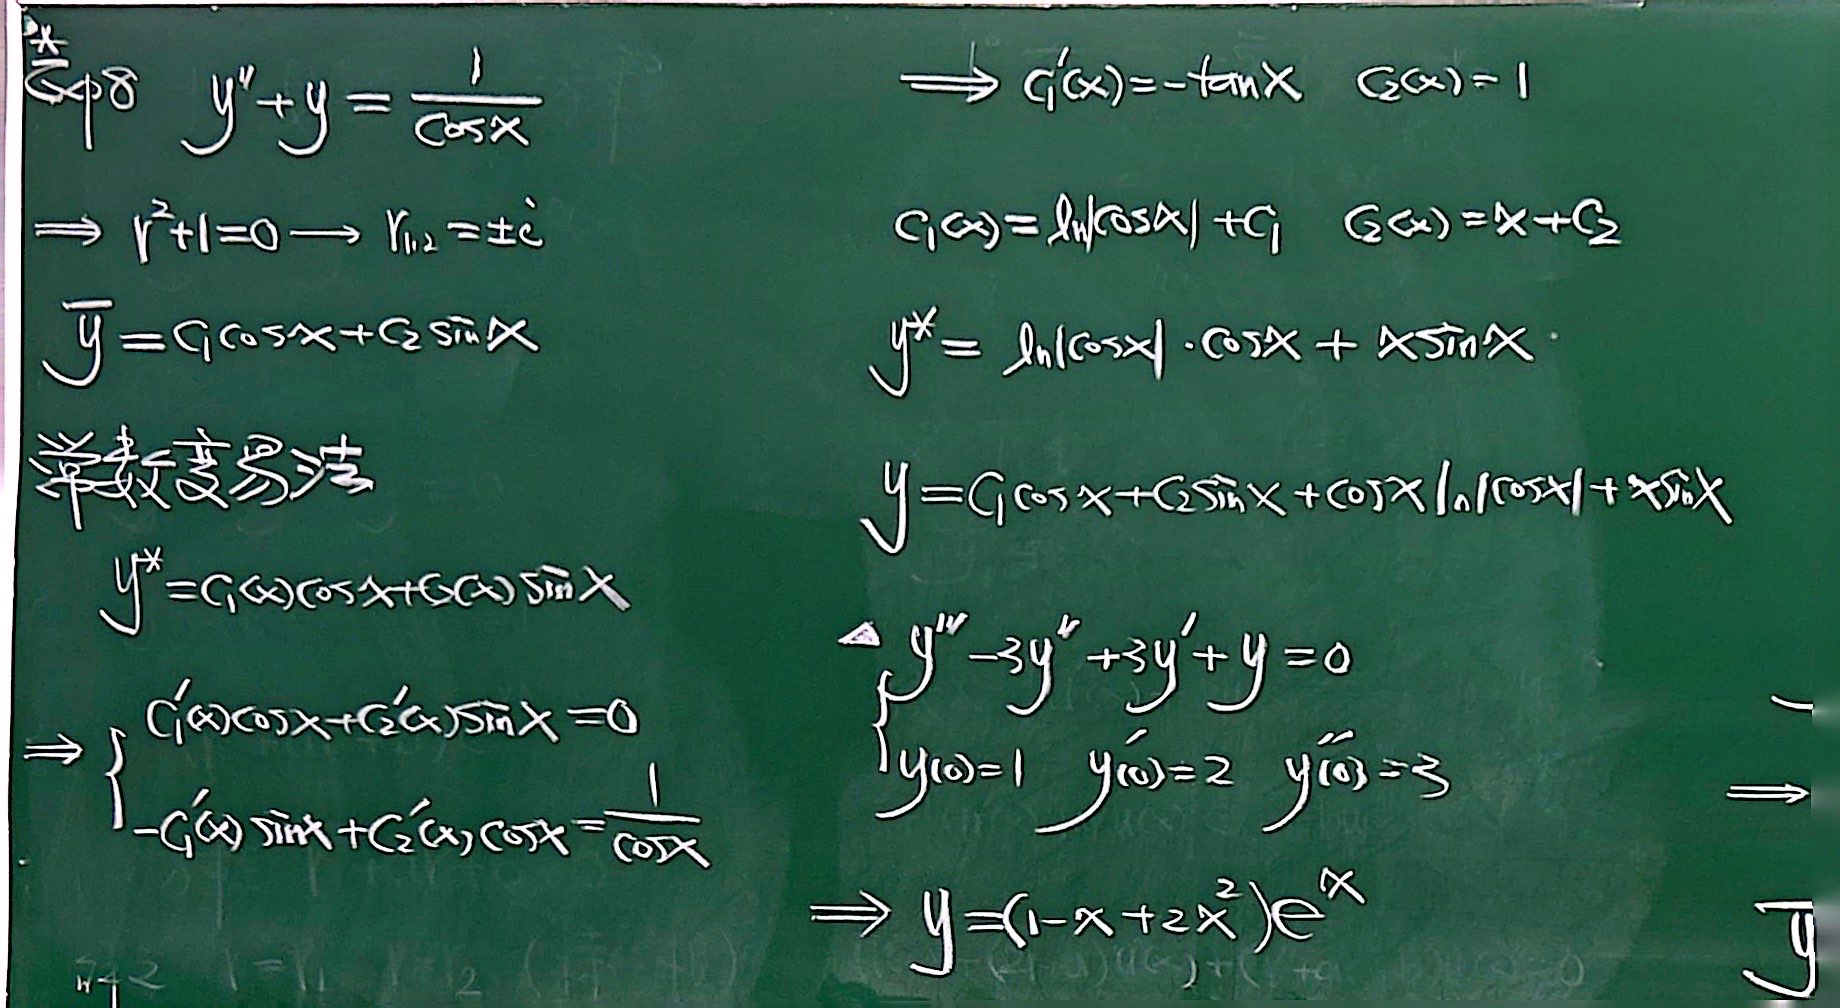 * Exp8 y″+y=1/cosx
⇒ r²+1=0 → r₁,₂=±i
ȳ=C₁cosx+C₂sinx
常数变易法
y*=C₁(x)cosx+C₂(x)sinx
⇒ { C₁′(x)cosx+C₂′(x)sinx=0
-C₁′(x)sinx+C₂′(x)cosx=1/cosx
⇒ C₁′(x)=-tanx C₂(x)=1
C₁(x)=ln|cosx|+C₁ C₂(x)=x+C₂
y*=ln|cosx|·cosx+xsinx
y=C₁cosx+C₂sinx+cosxln|cosx|+xsinx
{ y‴-3y″+3y′+y=0
y(0)=1 y′(0)=2 y″(0)=3
⇒ y=(1-x+2x²)eˣ
⇒